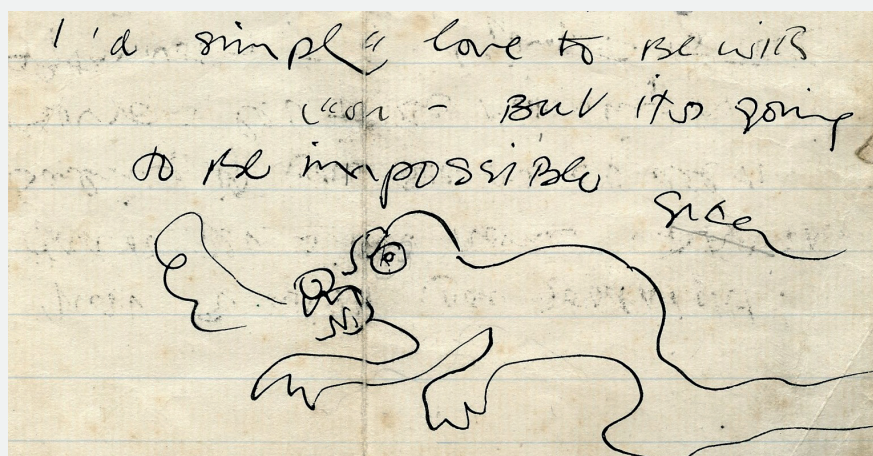 I'd simply love to be with
you - But its going
to Be impossible